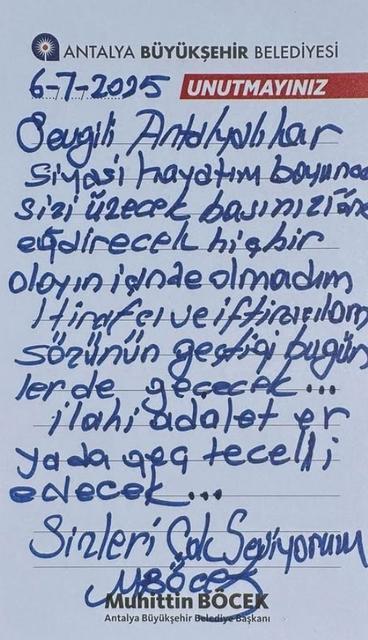 ANTALYA BÜYÜKŞEHİR BELEDİYESİ
6-7-2025 UNUTMAYINIZ
Sevgili Antalyalılar
siyasi hayatım boyunca
sizi üzecek başınızı öne
eğdirecek hiçbir
olayın içinde olmadım
İtirafçı ve iftiracıların
sözünün geçtiği bugün
lerde geçecek...
ilahi adalet er
yada geç tecelli
edecek...
Sizleri Çok Seviyorum
MBÖCEK
Muhittin BÖCEK
Antalya Büyükşehir Belediye Başkanı